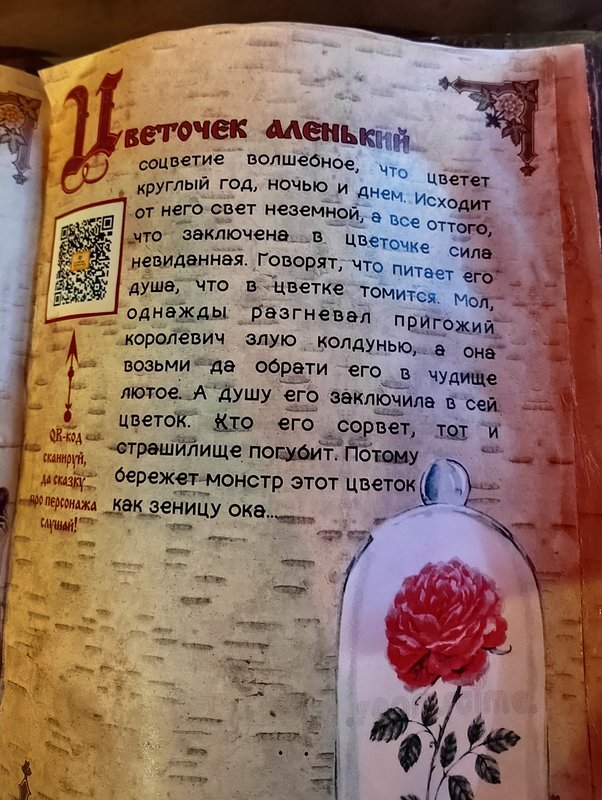 Цветочек аленький
соцветие волшебное, что цветет
круглый год, ночью и днем. Исходит
от него свет неземной, а все оттого,
что заключена в цветочке сила
невиданная. Говорят, что питает его
душа, что в цветке томится. Мол,
однажды разгневал пригожий
королевич злую колдунью, а она
возьми да обрати его в чудище
лютое. А душу его заключила в сей
цветок. Кто его сорвет, тот и
страшилище погубит. Потому
бережет монстр этот цветок
как зеницу ока...
QR-код
сканируй,
да сказку
про персонажа
слушай!